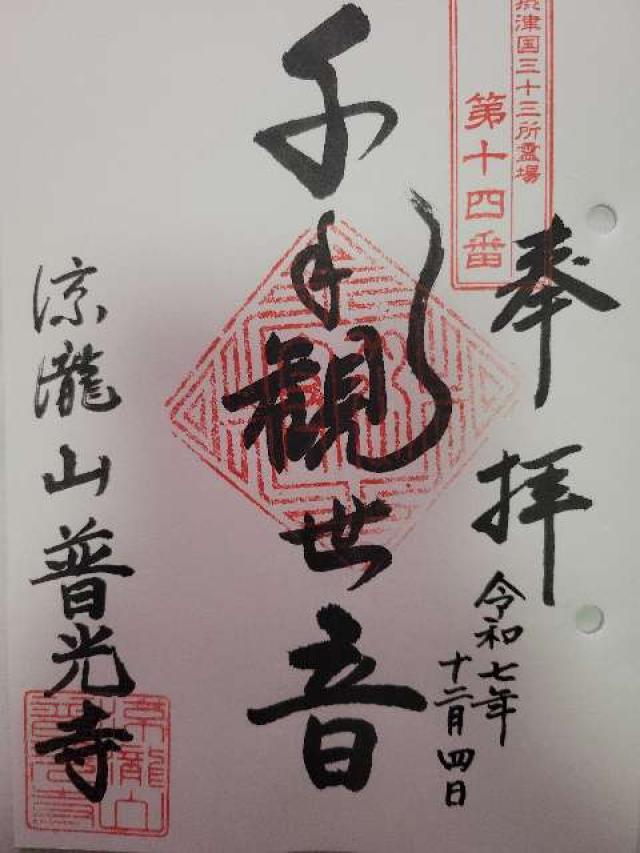 摂津国三十三所霊場
第十四番
奉拝
令和七年
十二月四日
千手観世音
涼瀧山普光寺
涼瀧山
普光寺